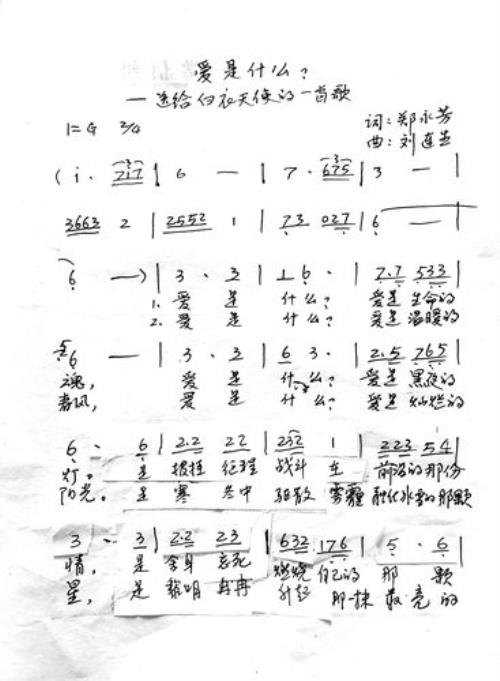 爱是什么?
— 送给白衣天使的一首歌
1=G 2/4
词:郑永芳
曲:刘连营
( i · 7i7 | 6 — | 7 · 675 | 3 — |
3663 2 | 2552 1 | 73 027 | 6 —
6 — ) | 3 · 3 | 1 6 · | 7.7 533 |
1. 爱 是 什么? 爱是 生命的
2. 爱 是 什么? 爱是 温暖的
56 — | 3 · 3 | 6 3 · | 2.5 765 |
魂, 爱 是 什么? 爱是 黑夜的
春风, 爱 是 什么? 爱是 灿烂的
6 · 6 | 2.2 22 | 232 1 | 223 54 |
灯。 是 披挂 征程 战斗 在 前沿的那份
阳光。 是 寒冬中 驱散 雾霾 融化冰雪的那颗
3 · 3 | 2.2 23 | 632 176 | 5 · 6 |
情, 是 舍身 忘死 燃烧 自己的 那 颗
星, 是 黎明 冉冉 升起 那一抹 最亮的